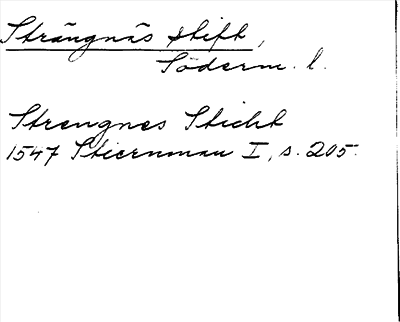 Strängnäs stift,
Söderm. l.
Strengnes Sticht
1547 Stiernman I, s. 205.